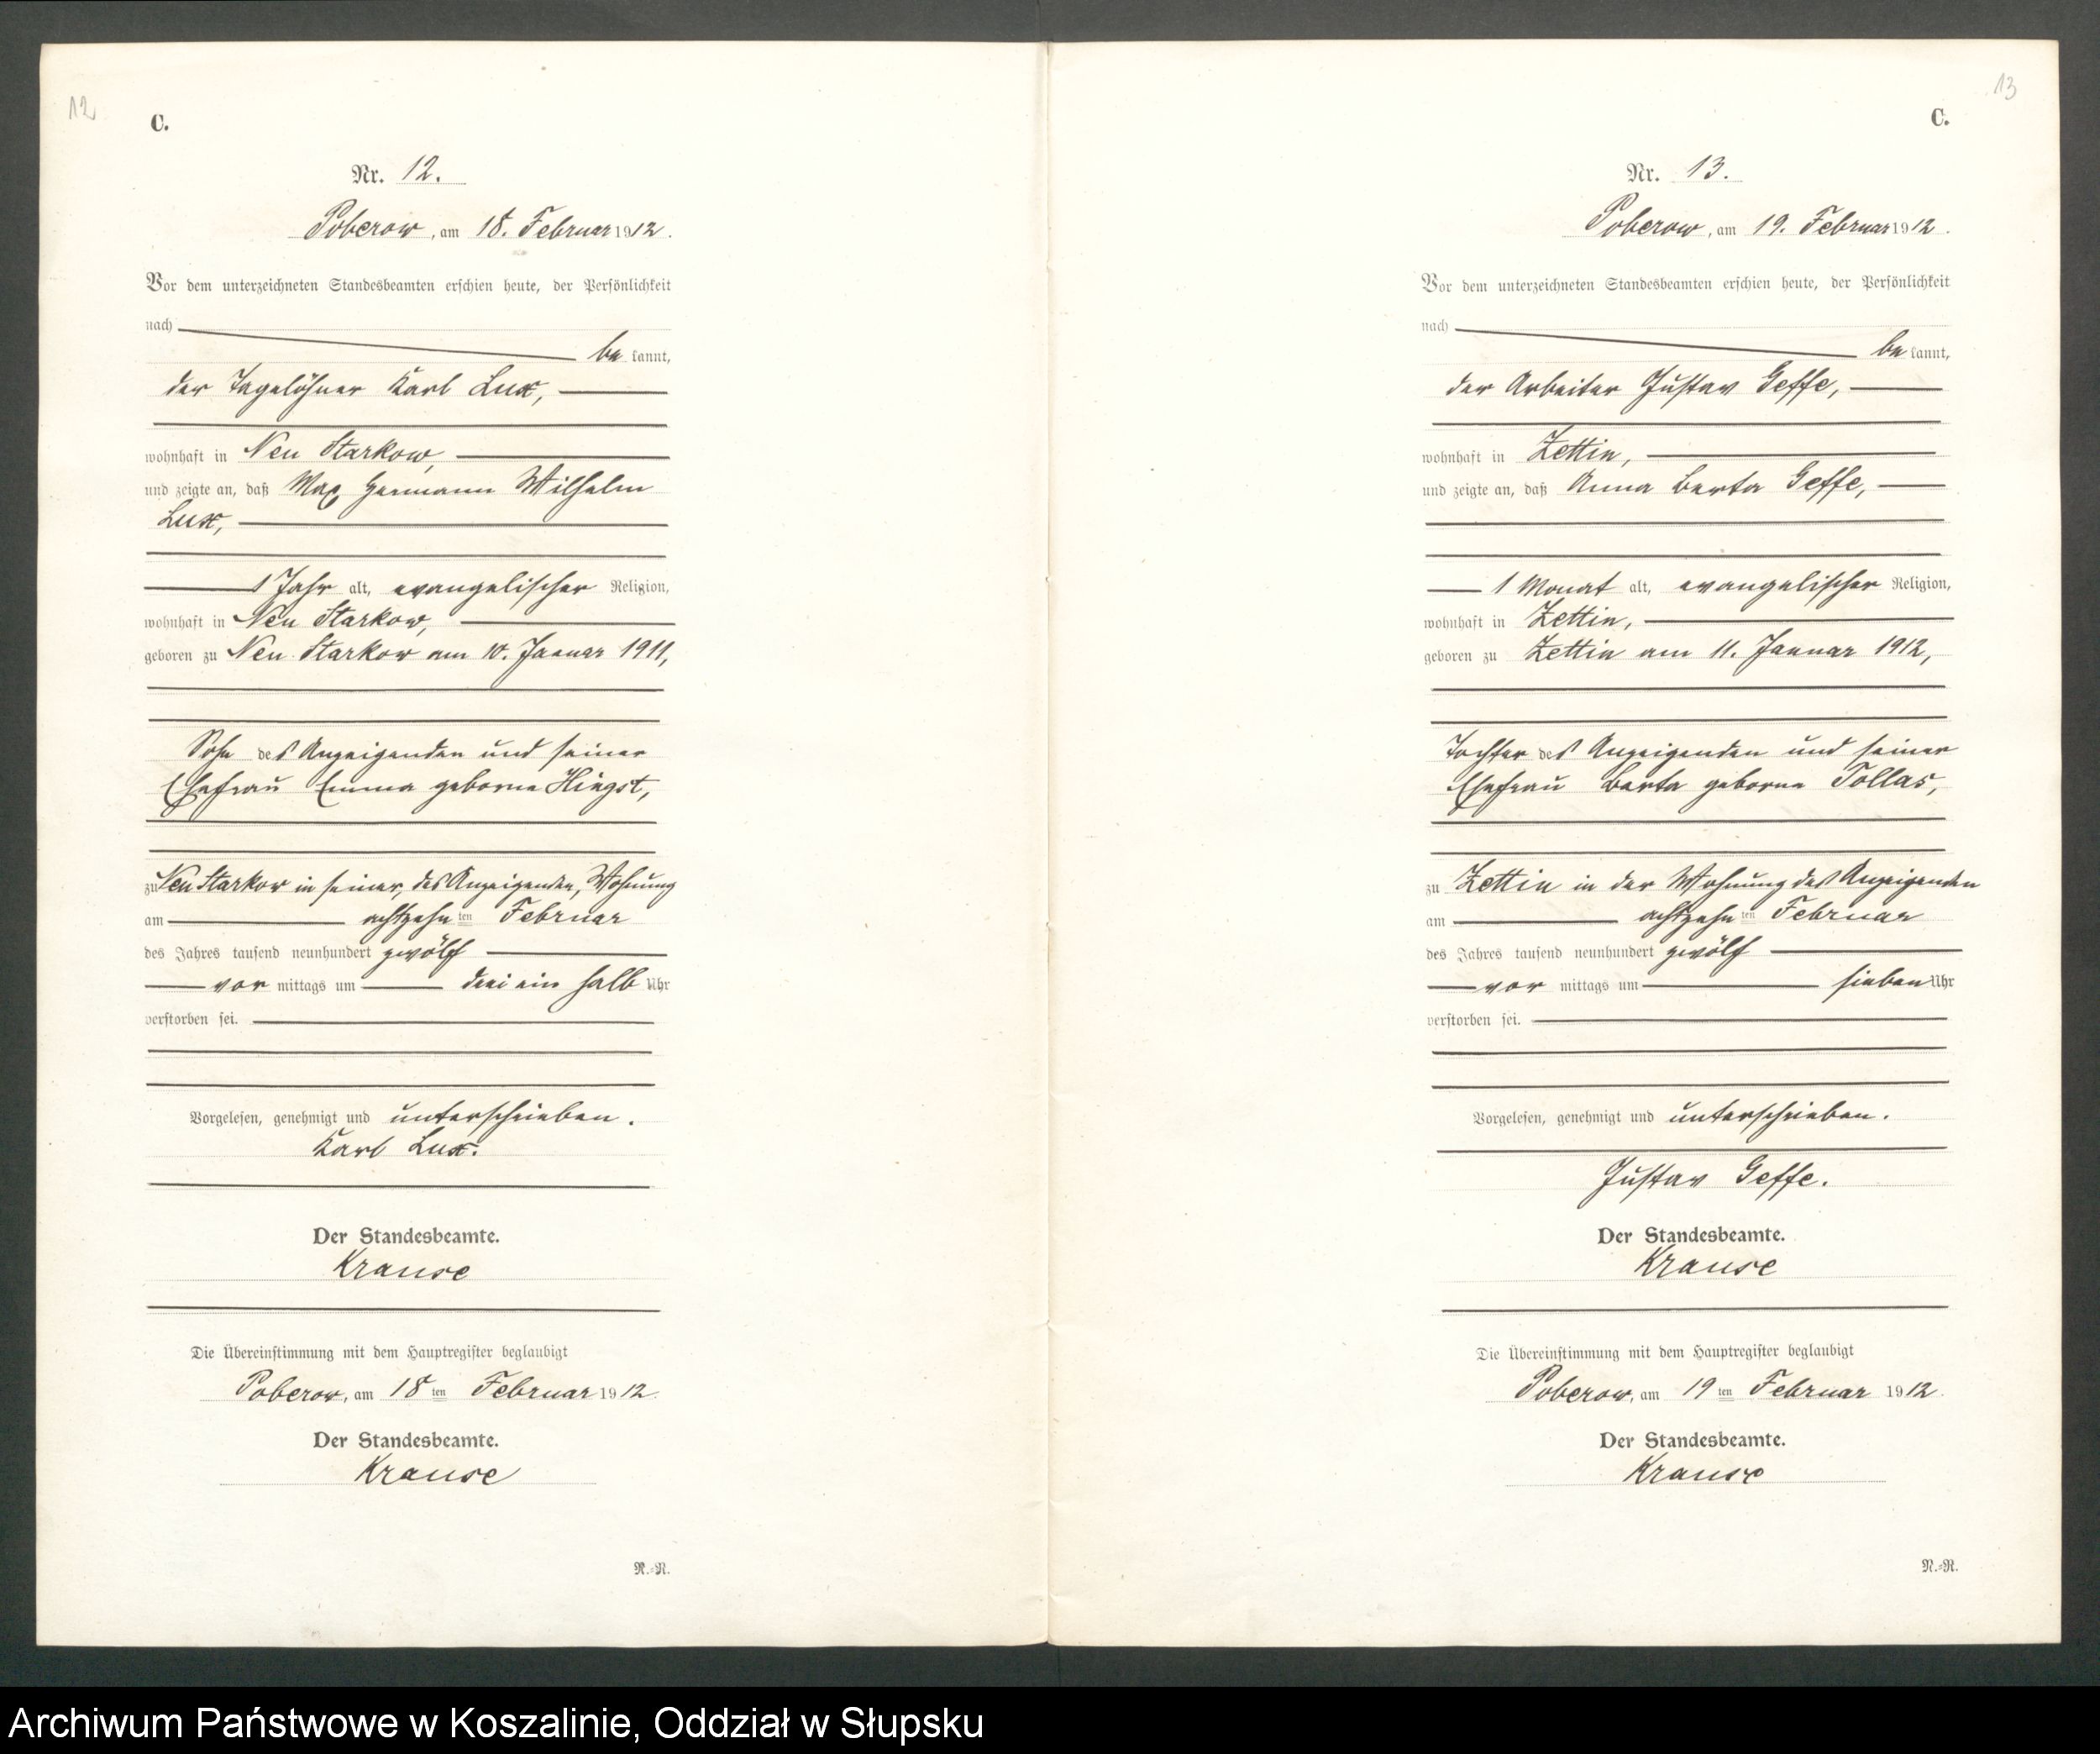 12
C.
Nr. 12.
Poberow, am 18. Februar 1912.
Vor dem unterzeichneten Standesbeamten erschien heute, der Persönlichkeit
nach
be kannt,
der Tagelöhner Karl Lux,
wohnhaft in Neu Starkow,
und zeigte an, daß Max Hermann Wilhelm
Lux,
1 Jahr alt, evangelischer Religion,
wohnhaft in Neu Starkow,
geboren zu Neu Starkow am 10. Januar 1911,
Sohn des Anzeigenden und seiner
Ehefrau Emma geborne Hingst,
zu Neu Starkow in seiner, des Anzeigenden, Wohnung
am achtzehnten Februar
des Jahres tausend neunhundert zwölf
vor mittags um drei ein halb Uhr
verstorben sei.
Vorgelesen, genehmigt und unterschrieben.
Karl Lux.
Der Standesbeamte.
Krause
Die Übereinstimmung mit dem Hauptregister beglaubigt
Poberow, am 18 ten Februar 1912.
Der Standesbeamte.
Krause
N.=N.
13
C.
Nr. 13.
Poberow, am 19. Februar 1912.
Vor dem unterzeichneten Standesbeamten erschien heute, der Persönlichkeit
nach
be kannt,
der Arbeiter Gustav Geffe,
wohnhaft in Zettin,
und zeigte an, daß Anna Berta Geffe,
1 Monat alt, evangelischer Religion,
wohnhaft in Zettin,
geboren zu Zettin am 11. Januar 1912,
Tochter des Anzeigenden und seiner
Ehefrau Berta geborne Tollas,
zu Zettin in der Wohnung des Anzeigenden
am achtzehnten Februar
des Jahres tausend neunhundert zwölf
vor mittags um sieben Uhr
verstorben sei.
Vorgelesen, genehmigt und unterschrieben.
Gustav Geffe.
Der Standesbeamte.
Krause
Die Übereinstimmung mit dem Hauptregister beglaubigt
Poberow, am 19 ten Februar 1912.
Der Standesbeamte.
Krause
N.=N.
Archiwum Państwowe w Koszalinie, Oddział w Słupsku